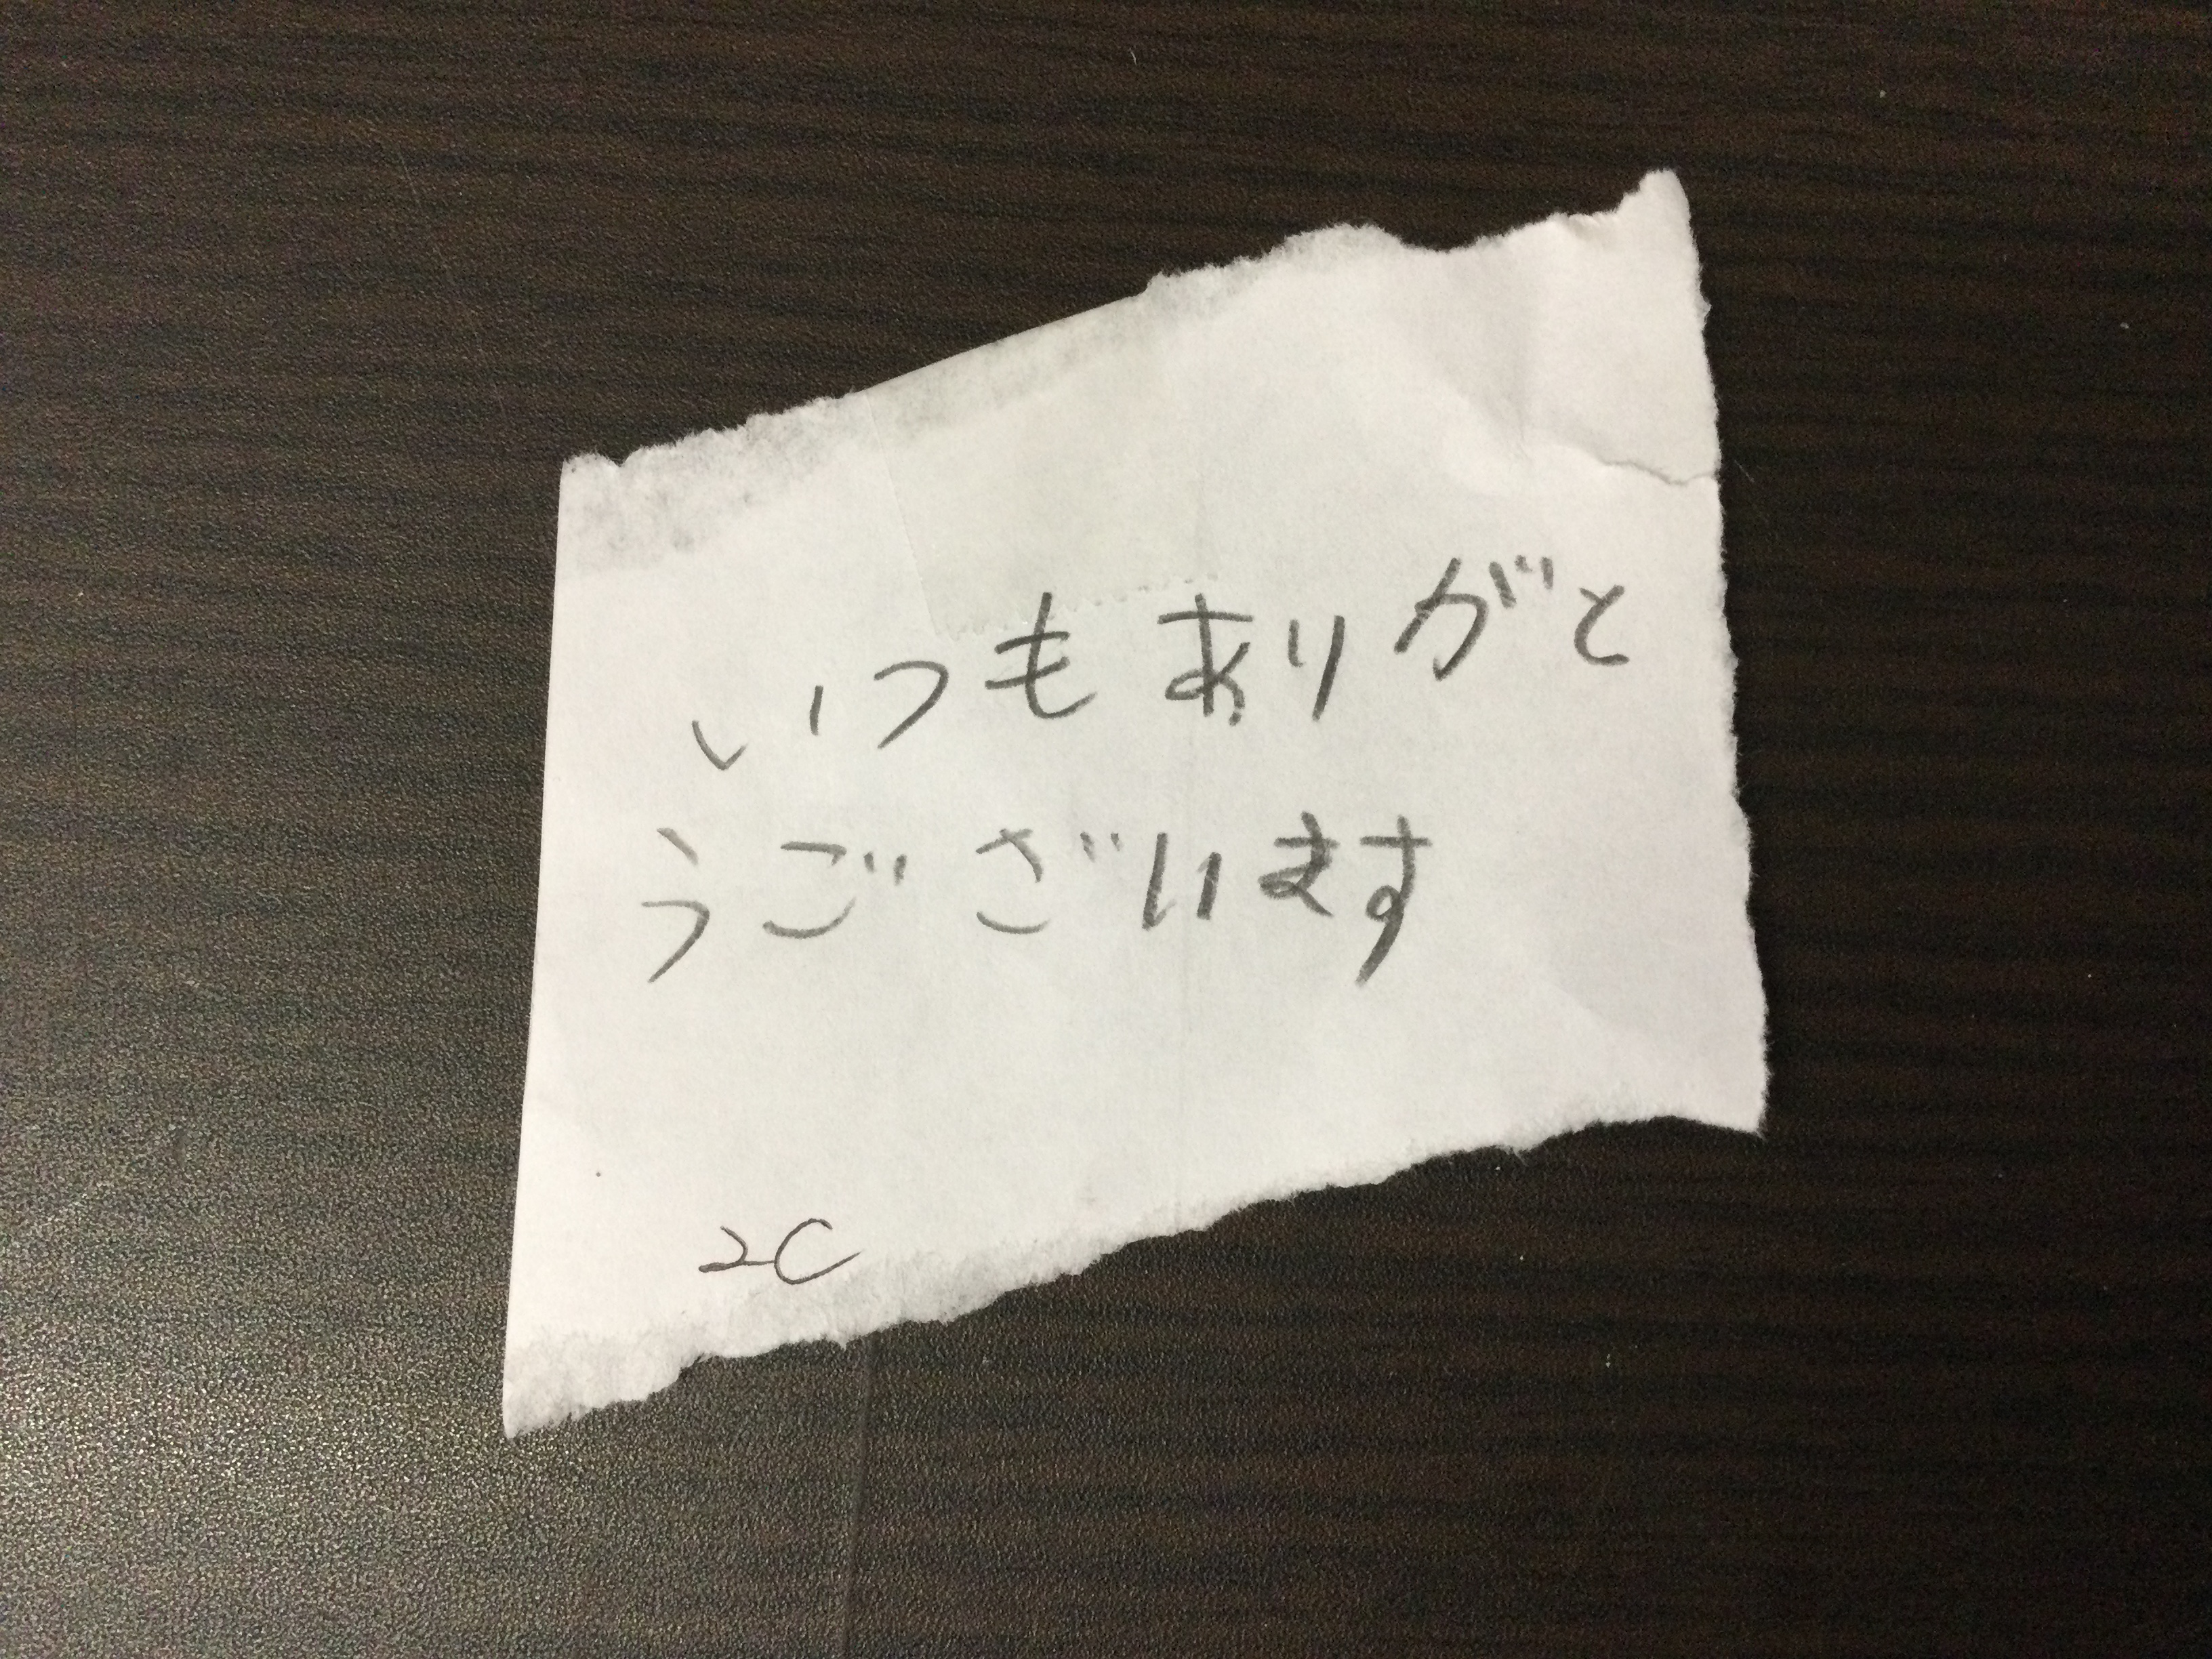 いつもありがと
うございます
2C